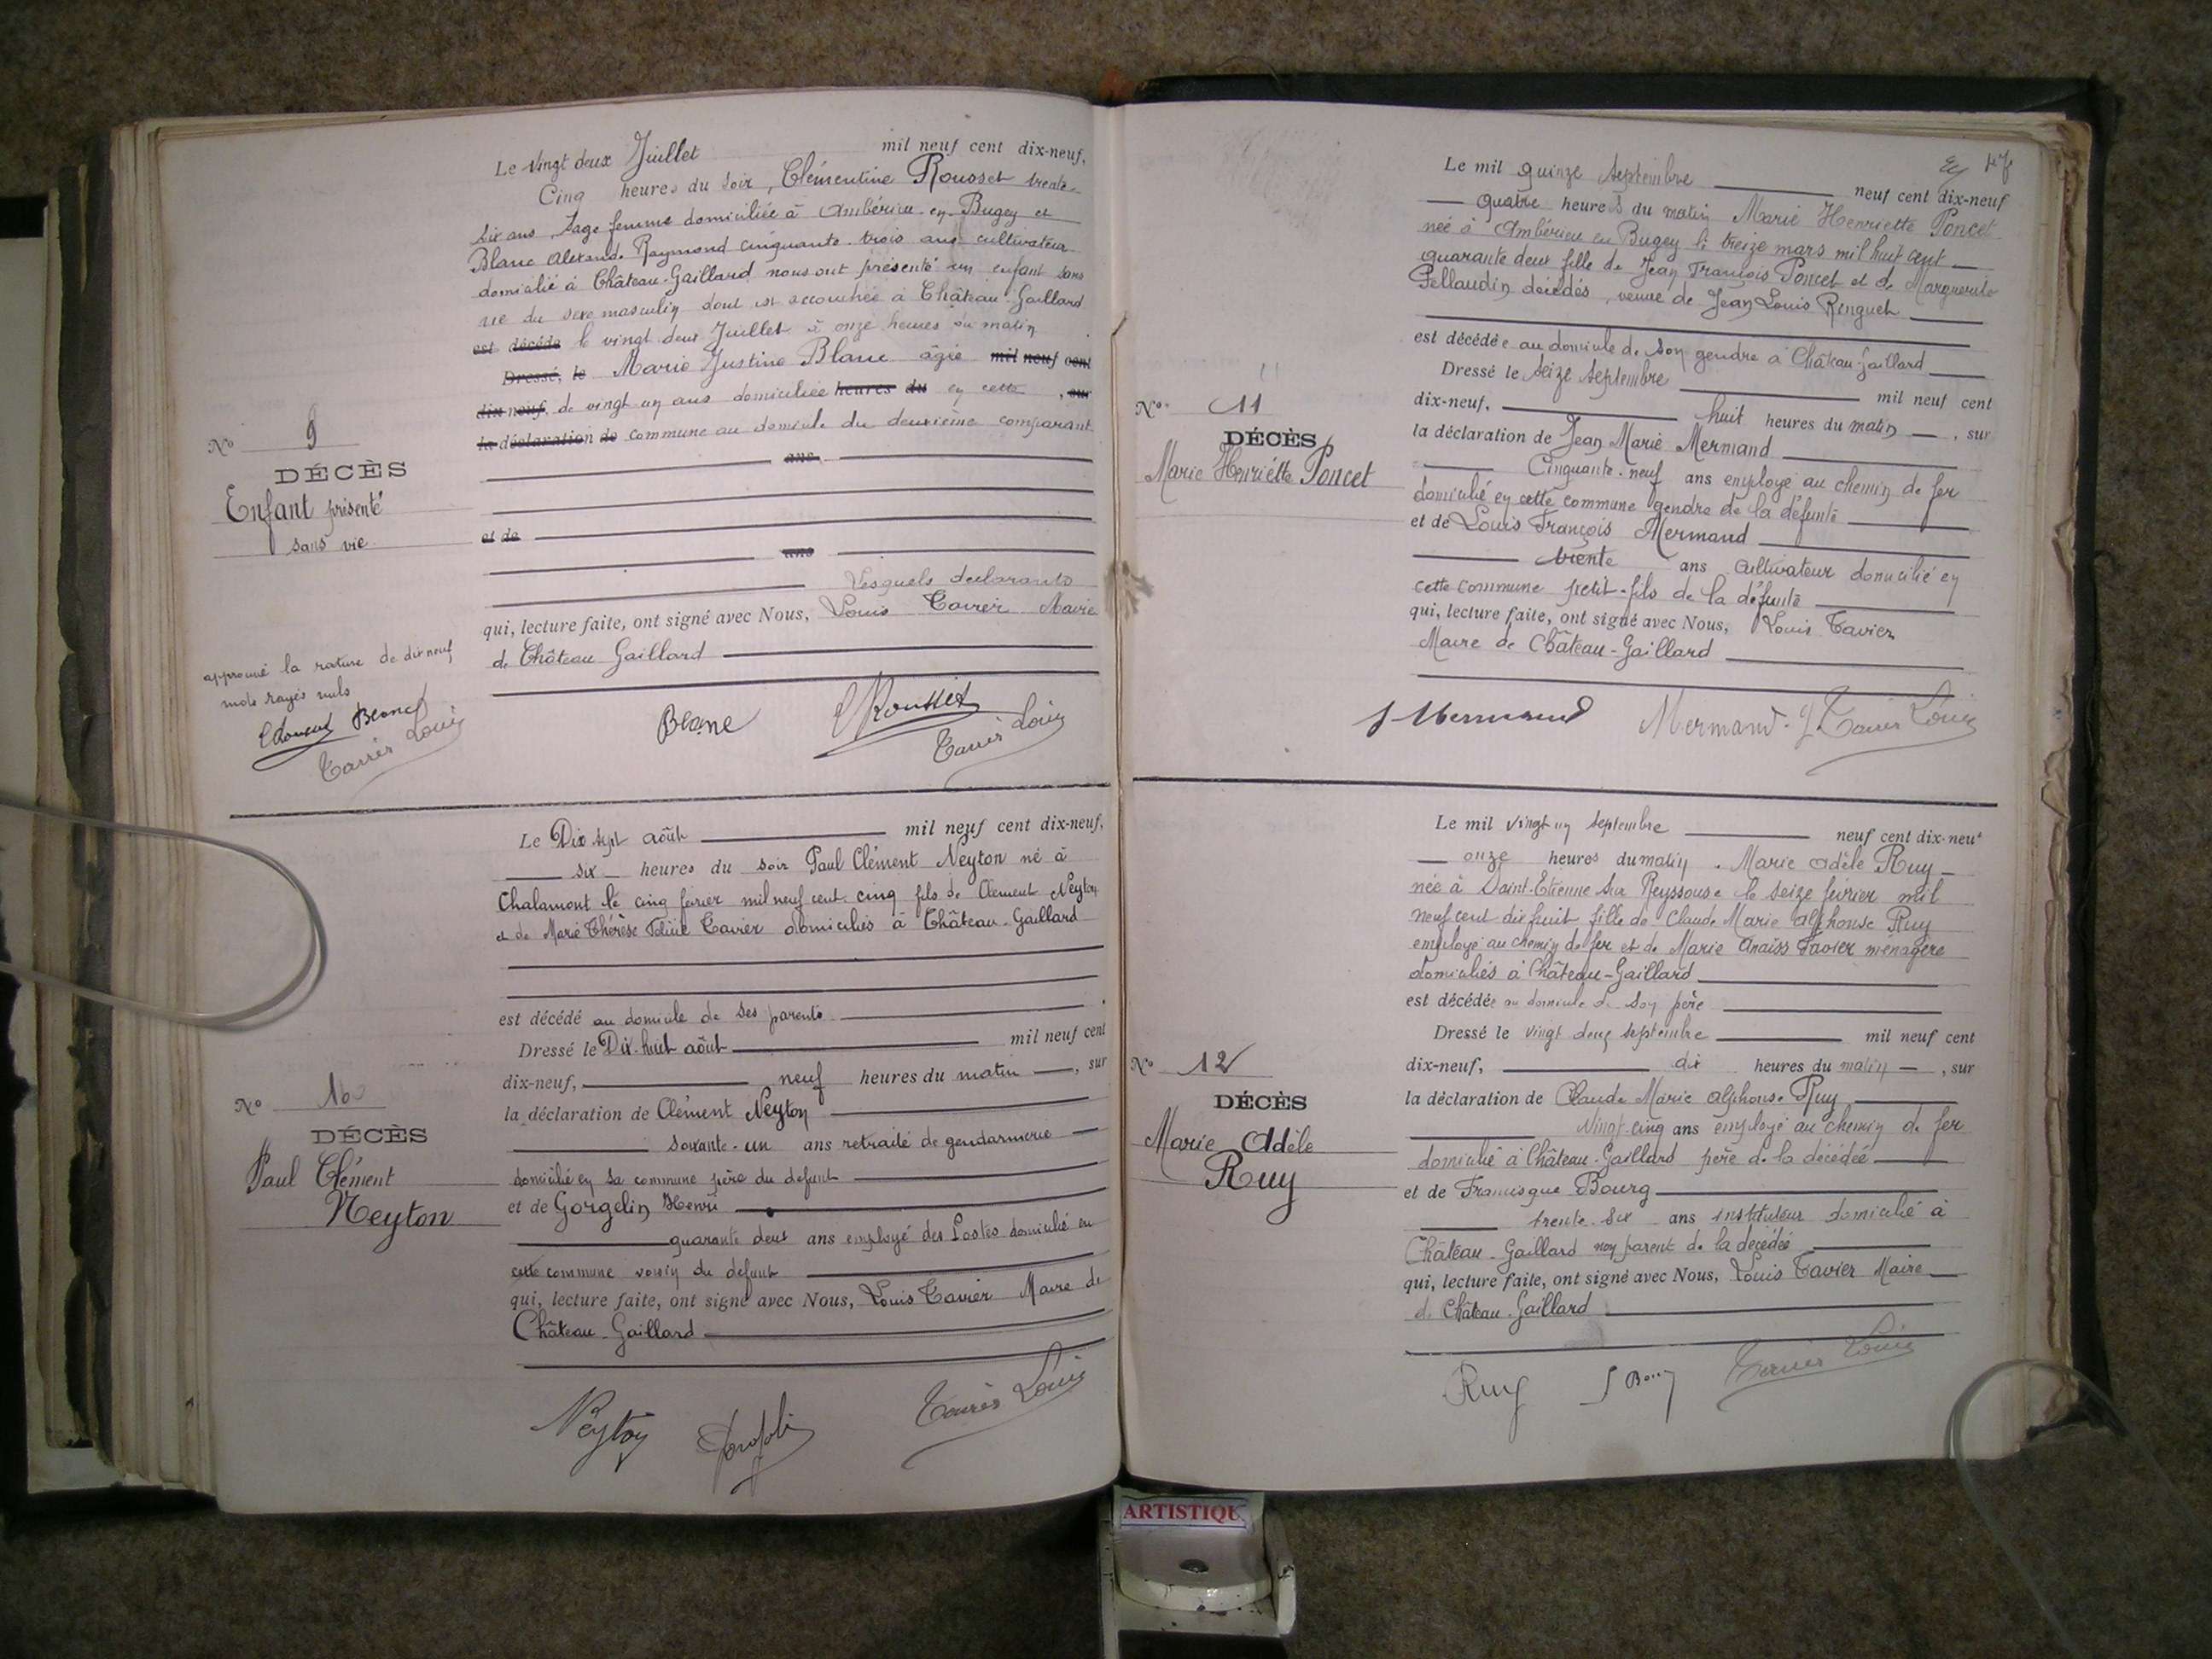 Le Vingt deux Juillet mil neuf cent dix-neuf,
Cinq heures du soir, Clémentine Rousset trente-
six ans, sage femme domiciliée à Ambérieu en Bugey et
Blanc Alexand. Raymond cinquante-trois ans cultivateur
domicilié à Château-Gaillard nous ont présenté un enfant sans
vie du sexe masculin dont est accouchée à Château-Gaillard
est décédé le vingt deux Juillet à onze heures du matin
Dressé, le Marie Justine Blanc âgée mil neuf cent
dix-neuf, de vingt un ans domiciliée heures du en cette , sur
la déclaration de commune au domicile du deuxième comparant
ans
et de
ans
Lesquels déclarants
qui, lecture faite, ont signé avec Nous, Louis Tavier Maire
de Château Gaillard
N° 9
DÉCÈS
Enfant présenté
sans vie
approuvé la rature de dix neuf
mots rayés nuls
Blanc
Tavier Louis
Blanc
Rousset
Tavier Louis
Le Dix sept août mil neuf cent dix-neuf,
six heures du soir Paul Clément Neyton né à
Chalamont le cinq février mil neuf cent cinq fils de Clément Neyton
et de Marie Thérèse Tavier domiciliés à Château-Gaillard
est décédé au domicile de ses parents
Dressé le Dix-huit août mil neuf cent
dix-neuf, neuf heures du matin , sur
la déclaration de Clément Neyton
soixante-un ans retraité de gendarmerie
domicilié en sa commune père du défunt
et de Gorgelin Henri
quarante deux ans employé des Postes domicilié en
cette commune voisin du défunt
qui, lecture faite, ont signé avec Nous, Louis Tavier Maire de
Château-Gaillard
N° 10
DÉCÈS
Paul Clément
Neyton
Neyton
Tavier Louis
47
Le mil quinze Septembre neuf cent dix-neuf
quatre heures du matin Marie Henriette Poncet
née à Ambérieu en Bugey le treize mars mil huit cent
quarante deux fille de Jean François Poncet et de Marguerite
Pellaudin décédés, veuve de Jean Louis Ringuet
est décédée au domicile de son gendre à Château-Gaillard
Dressé le seize septembre mil neuf cent
dix-neuf, huit heures du matin , sur
la déclaration de Jean Marie Mermand
Cinquante-neuf ans employé au chemin de fer
domicilié en cette commune gendre de la défunte
et de Louis François Mermand
trente ans cultivateur domicilié en
cette commune petit-fils de la défunte
qui, lecture faite, ont signé avec Nous, Louis Tavier
Maire de Château-Gaillard
N° 11
DÉCÈS
Marie Henriette Poncet
J Mermand
Mermand
Tavier Louis
Le mil vingt un septembre neuf cent dix-neuf
onze heures du matin. Marie Adèle Ruy
née à Saint-Etienne sur Reyssouse le seize février mil
neuf cent dix huit fille de Claude Marie Alphonse Ruy
employé au chemin de fer et de Marie Anaïss Favier ménagère
domiciliés à Château-Gaillard
est décédée au domicile de son père
Dressé le vingt deux septembre mil neuf cent
dix-neuf, dix heures du matin , sur
la déclaration de Claude Marie Alphonse Ruy
Vingt-cinq ans employé au chemin de fer
domicilié à Château-Gaillard père de la décédée
et de Francisque Bourg
trente-six ans instituteur domicilié à
Château-Gaillard non parent de la décédée
qui, lecture faite, ont signé avec Nous, Louis Tavier Maire
de Château-Gaillard
N° 12
DÉCÈS
Marie Adèle
Ruy
Ruy
Tavier Louis
ARTISTIQU